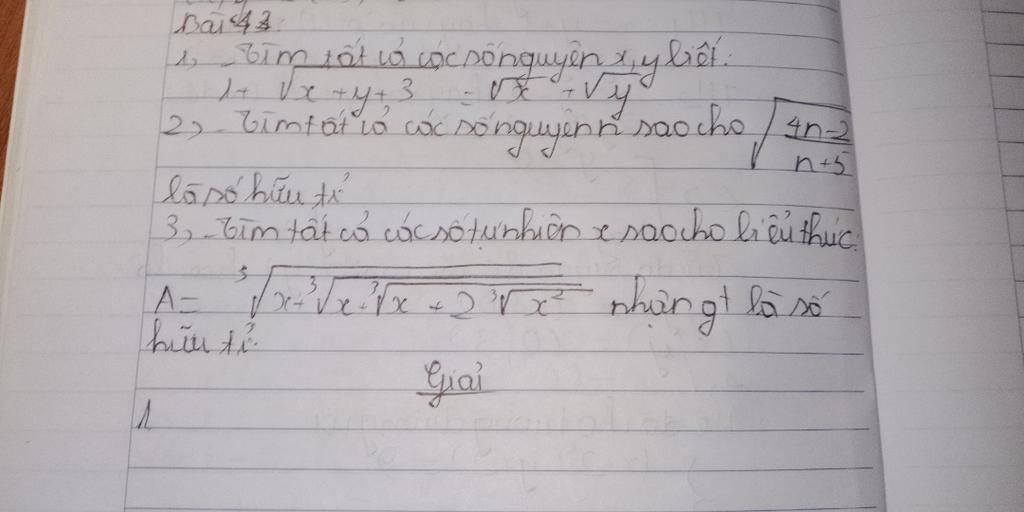 Bài 43.
1, Tìm tất cả các số nguyên x, y biết:
1 + √(x + y + 3) = √x + √y
2, Tìm tất cả các số nguyên n sao cho √((4n-2)/(n+5))
là số hữu tỉ
3, Tìm tất cả các số tự nhiên x sao cho biểu thức:
A = ∛(x + ∛(x + ∛(x + 2∛(x²)))) nhận gt là số
hữu tỉ.
Giải
1